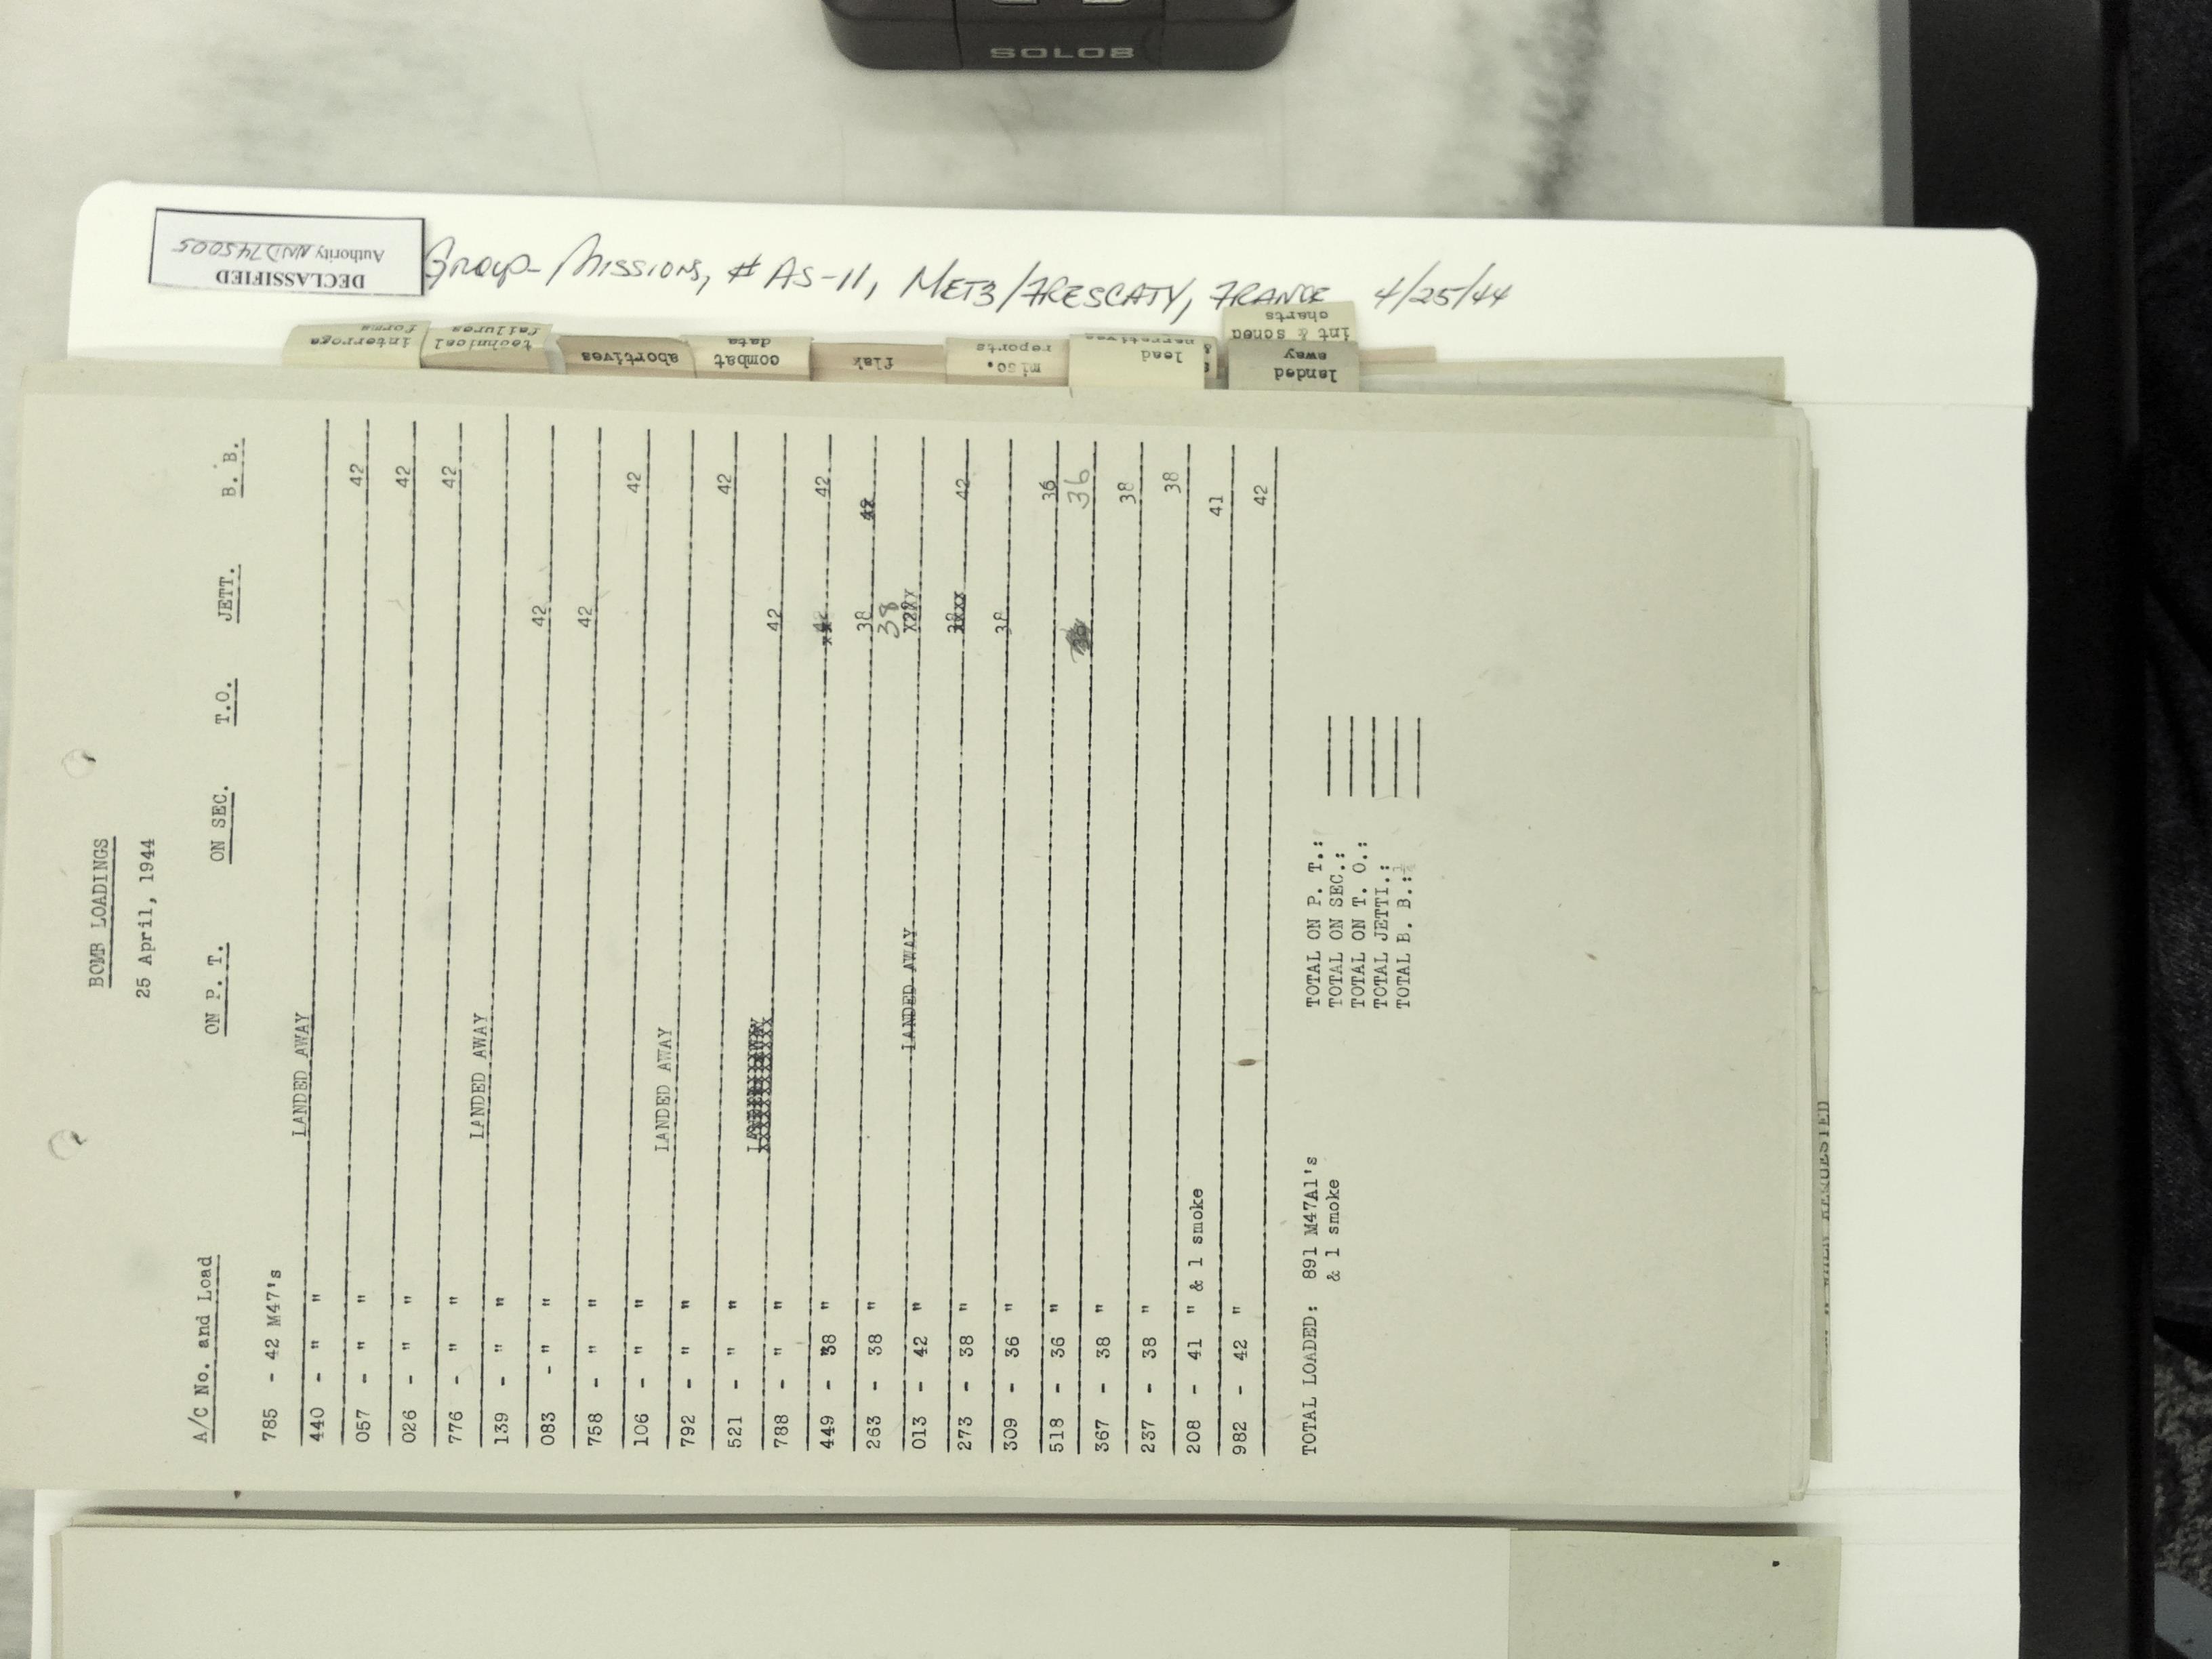 SOLO8
DECLASSIFIED
Authority NND745005
Group-Missions, # AS-11, METZ/FRESCATY, FRANCE 4/25/44
interroga forms
technical failures
abortives
combat data
flak
misc. reports
lead & narratives
int & sched charts
landed away
BOMB LOADINGS
25 April, 1944
A/C No. and Load ON P. T. ON SEC. T.O. JETT. B. B.
785 - 42 M47's LANDED AWAY
440 - " " 42
057 - " " 42
026 - " " 42
776 - " " LANDED AWAY
139 - " " 42
083 - " " 42
758 - " " 42
106 - " " LANDED AWAY
792 - " " 42
521 - " " 42
788 - " " 42
449 - 38 " 38
263 - 38 " LANDED AWAY 38
013 - 42 " 42
273 - 38 " 38
309 - 36 " 36
518 - 36 " 36
367 - 38 " 38
237 - 38 " 38
208 - 41 " & 1 smoke 41
982 - 42 " 42
TOTAL LOADED: 891 M47A1's
& 1 smoke
TOTAL ON P. T.:
TOTAL ON SEC.:
TOTAL ON T. O.:
TOTAL JETTI.:
TOTAL B. B.: